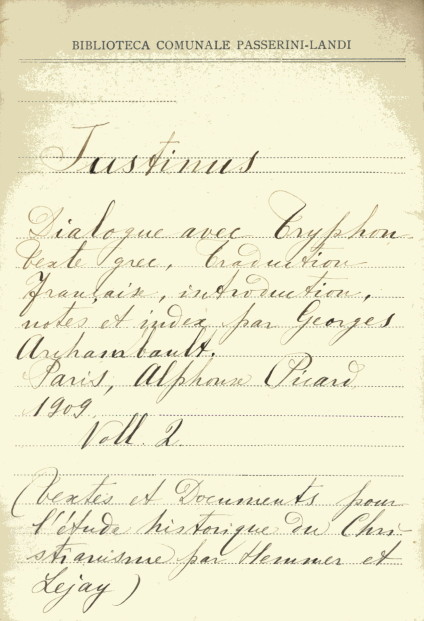 BIBLIOTECA COMUNALE PASSERINI-LANDI
Justinus
Dialogue avec Tryphon
texte grec, traduction
française, introduction,
notes et index par Georges
Archambault.
Paris, Alphonse Picard
1909.
Voll. 2
(Textes et Documents pour
l'étude historique du Chri-
stianisme par Hemmer et
Lejay)